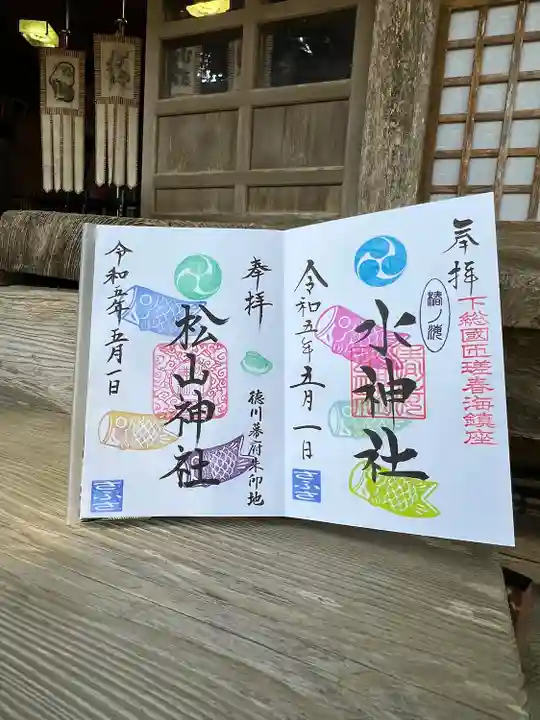 奉拝
下総國匝瑳春海鎮座
椿ノ海
水神社
令和五年五月一日
さふさ
奉拝
徳川幕府朱印地
松山神社
令和五年五月一日
さふさ